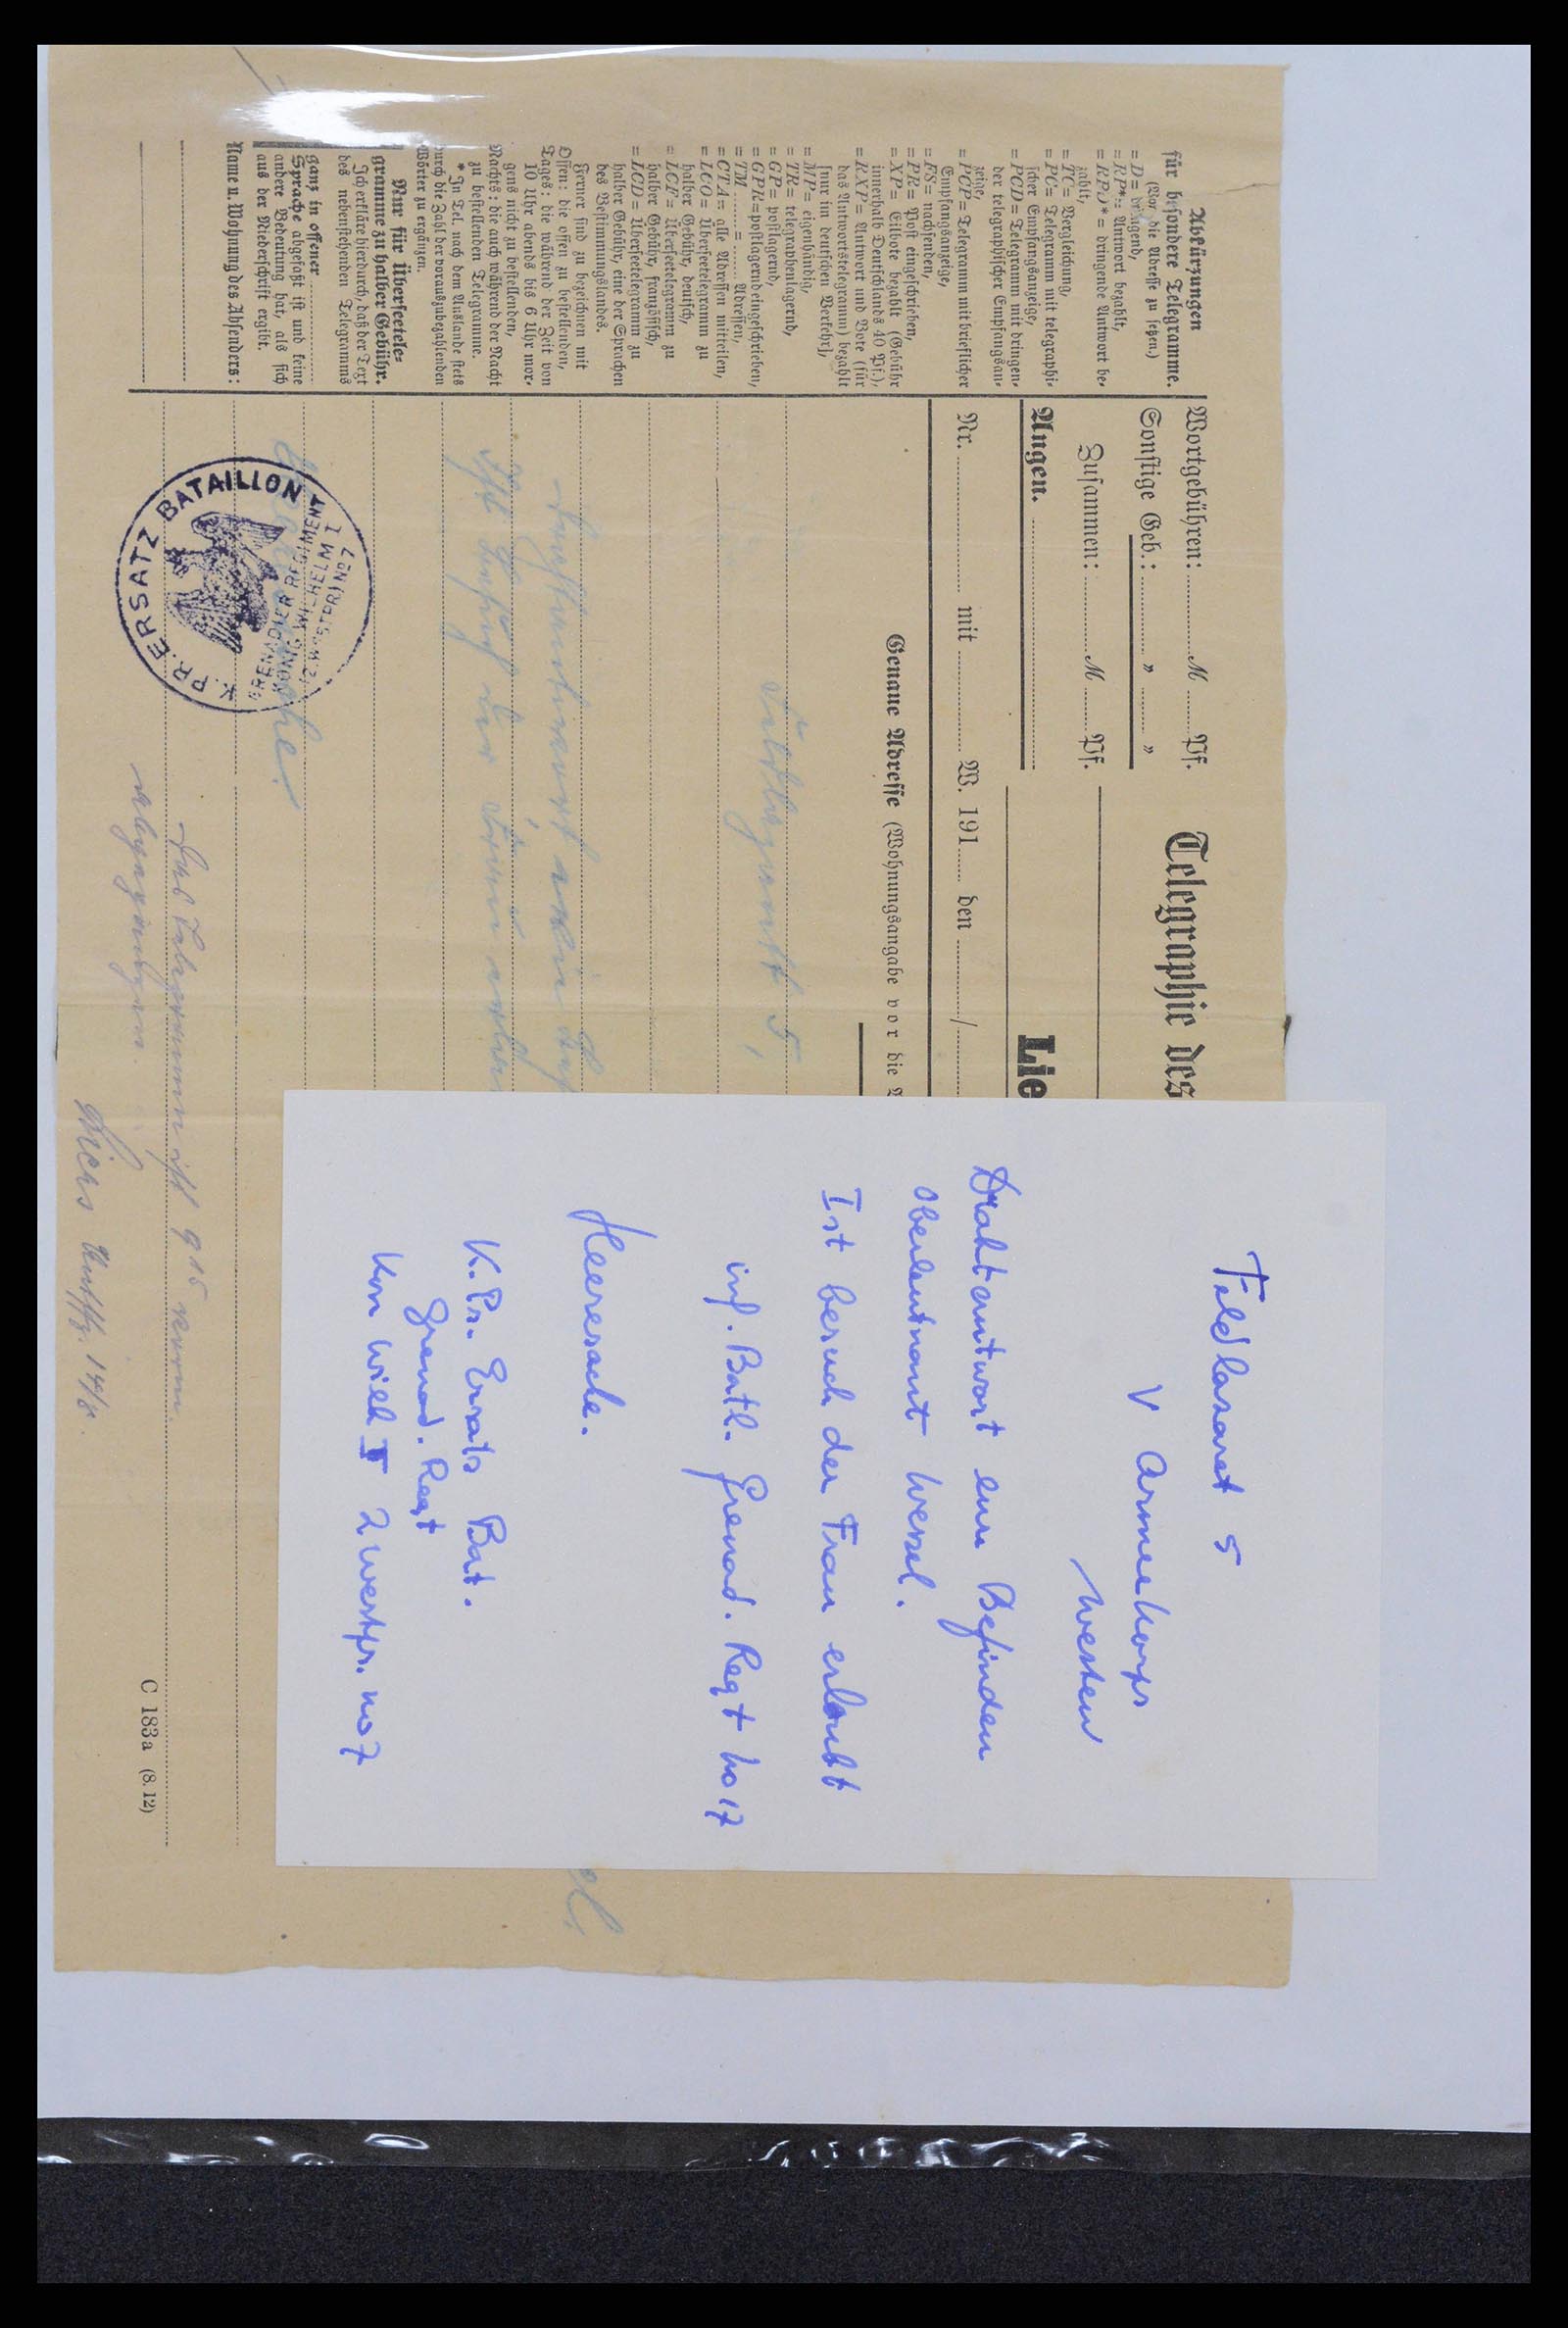 Abkürzungen
für besondere Telegramme.
(Vor die Adresse zu setzen.)
=D= dringend,
=RP*= Antwort bezahlt,
=RPD*= dringende Antwort be-
zahlt,
=TC= Vergleichung,
=PC= Telegramm mit telegraphi-
scher Empfangsanzeige,
=PCD= Telegramm mit dringen-
der telegraphischer Empfangsan-
zeige,
=PCP= Telegramm mit brieflicher
Empfangsanzeige,
=FS= nachsenden,
=PR= Post eingeschrieben,
=XP= Eilbote bezahlt (Gebühr
innerhalb Deutschlands 40 Pf.),
=RXP= Antwort und Bote (für
das Antwortstelegramm) bezahlt
[nur im deutschen Verkehr],
=MP= eigenhändig,
=TR= telegraphenlagernd,
=GP= postlagernd,
=GPR= postlagernd eingeschrieben,
=TM ........ = ........ Adressen,
=CTA= alle Adressen mitteilen,
=LCO= Überseetelegramm zu
halber Gebühr, deutsch,
=LCF= Überseetelegramm zu
halber Gebühr, französisch,
=LCD= Überseetelegramm zu
halber Gebühr, eine der Sprachen
des Bestimmungslandes.
Ferner sind zu bezeichnen mit
Offen: die offen zu bestellenden,
Tages: die während der Zeit von
10 Uhr abends bis 6 Uhr mor-
gens nicht zu bestellenden,
Nachts: die auch während der Nacht
zu bestellenden Telegramme.
* In Tel. nach dem Auslande stets
durch die Zahl der vorauszubezahlenden
Wörter zu ergänzen.
Nur für Überseetele-
gramme zu halber Gebühr.
Ich erkläre hierdurch, daß der Text
des nebenstehenden Telegramms
ganz in offener ............
Sprache abgefaßt ist und keine
andere Bedeutung hat, als sich
aus der Niederschrift ergibt.
Name u. Wohnung des Absenders:
Wortgebühren: ........ M ...... Pf.
Sonstige Geb.: ........ " ........ "
Zusammen: ........ M ...... Pf.
Angen.
Telegraphie des
Lie
Nr. ............ mit ............ W. 191..... den ........./.........
Genaue Adresse (Wohnungsangabe vor die
Feldlazarett 5,
Drahtantwort
Ist Besuch der Frau
Heeressache.
K. PR. ERSATZ BATAILLON
GRENADIER REGIMENT
KÖNIG WILHELM I
(2. WESTPR) No 7
Das Telegramm ist 9 15 vorm.
abgegangen.
Untffz. 14/8.
C 183a (8.12)
Feldlasaret 5
V Armeekorps
Westen
Drahtantwort enn Befinden
Oberleutnant Wessel.
Ist besuch der Frau erlaubt
inf. Batl. Grenad. Regt no 17
Heeresache.
K. Pr. Ersats Bat.
Grenad. Regt
Kon Wilh I 2 westpr. no 7